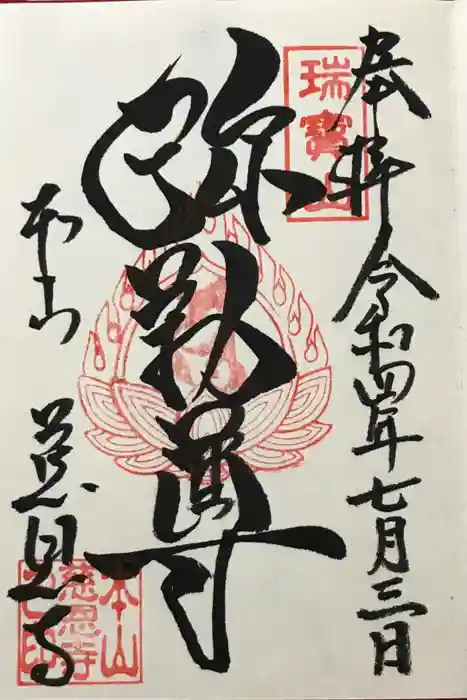 奉拝 令和四年七月三日
瑞寳山
弥勒尊
本山
慈恩寺
本山
慈恩寺
之印